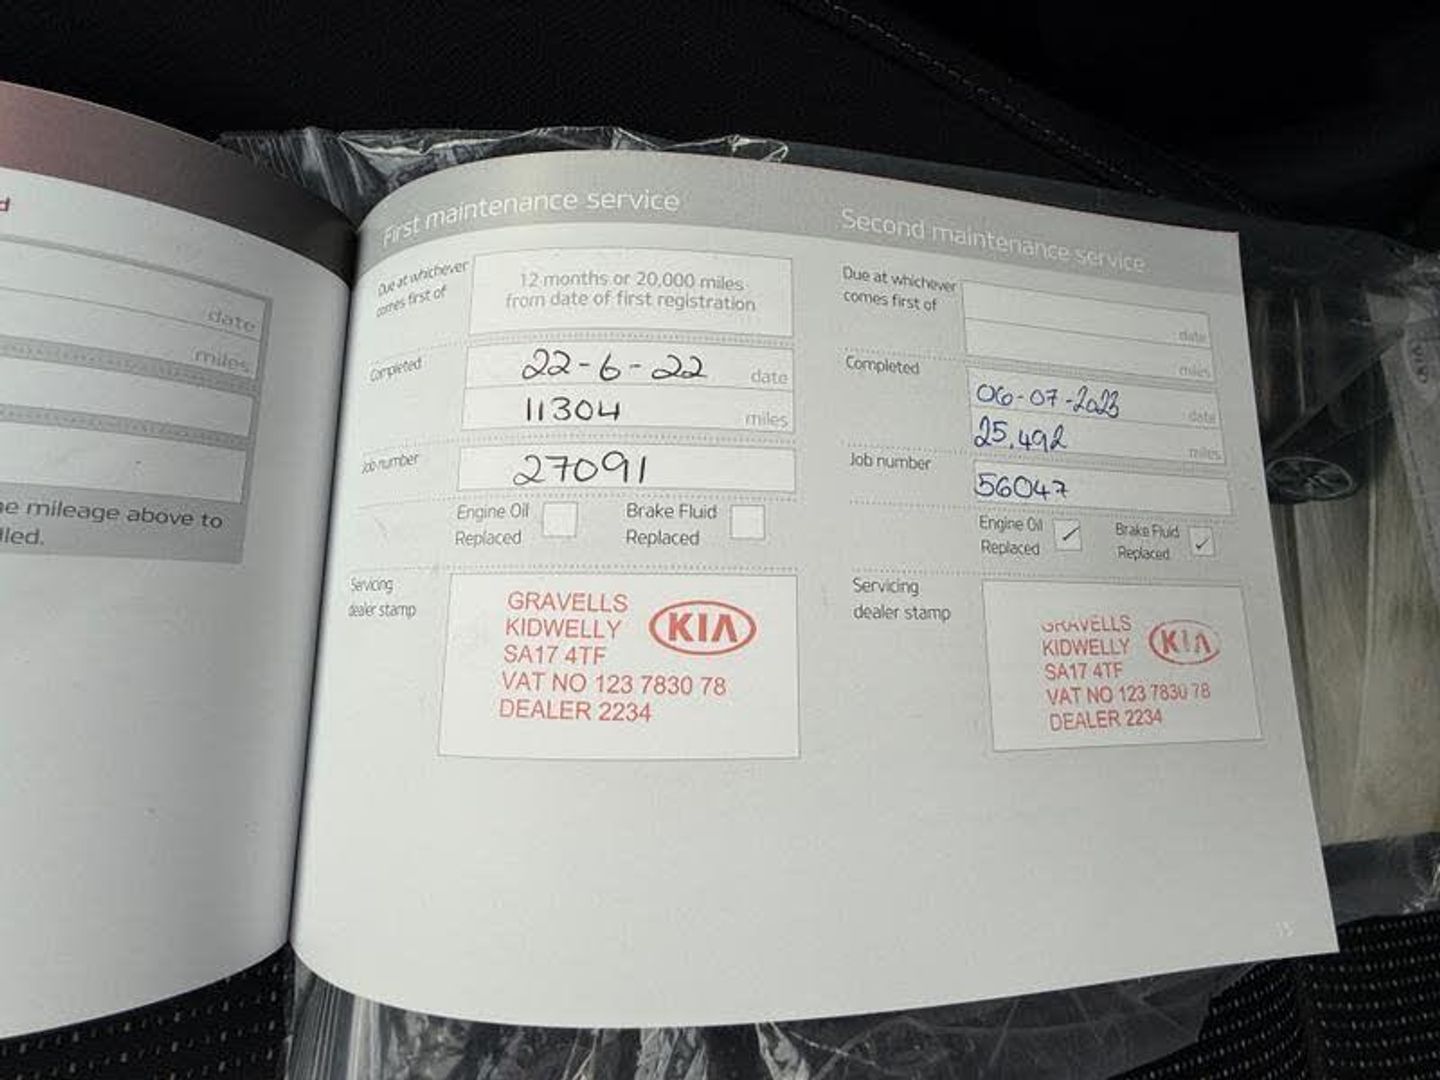 d
date
miles
e mileage above to
lled.
First maintenance service
Due at whichever
comes first of
12 months or 20,000 miles
from date of first registration
Completed
22-6-22 date
11304 miles
Job number
27091
Engine Oil
Replaced
Brake Fluid
Replaced
Servicing
dealer stamp
GRAVELLS
KIDWELLY
SA17 4TF
VAT NO 123 7830 78
DEALER 2234
KIA
Second maintenance service
Due at whichever
comes first of
date
miles
Completed
06-07-2023 date
25.492 miles
Job number
56047
Engine Oil
Replaced ✓
Brake Fluid
Replaced ✓
Servicing
dealer stamp
GRAVELLS
KIDWELLY
SA17 4TF
VAT NO 123 7830 78
DEALER 2234
KIA